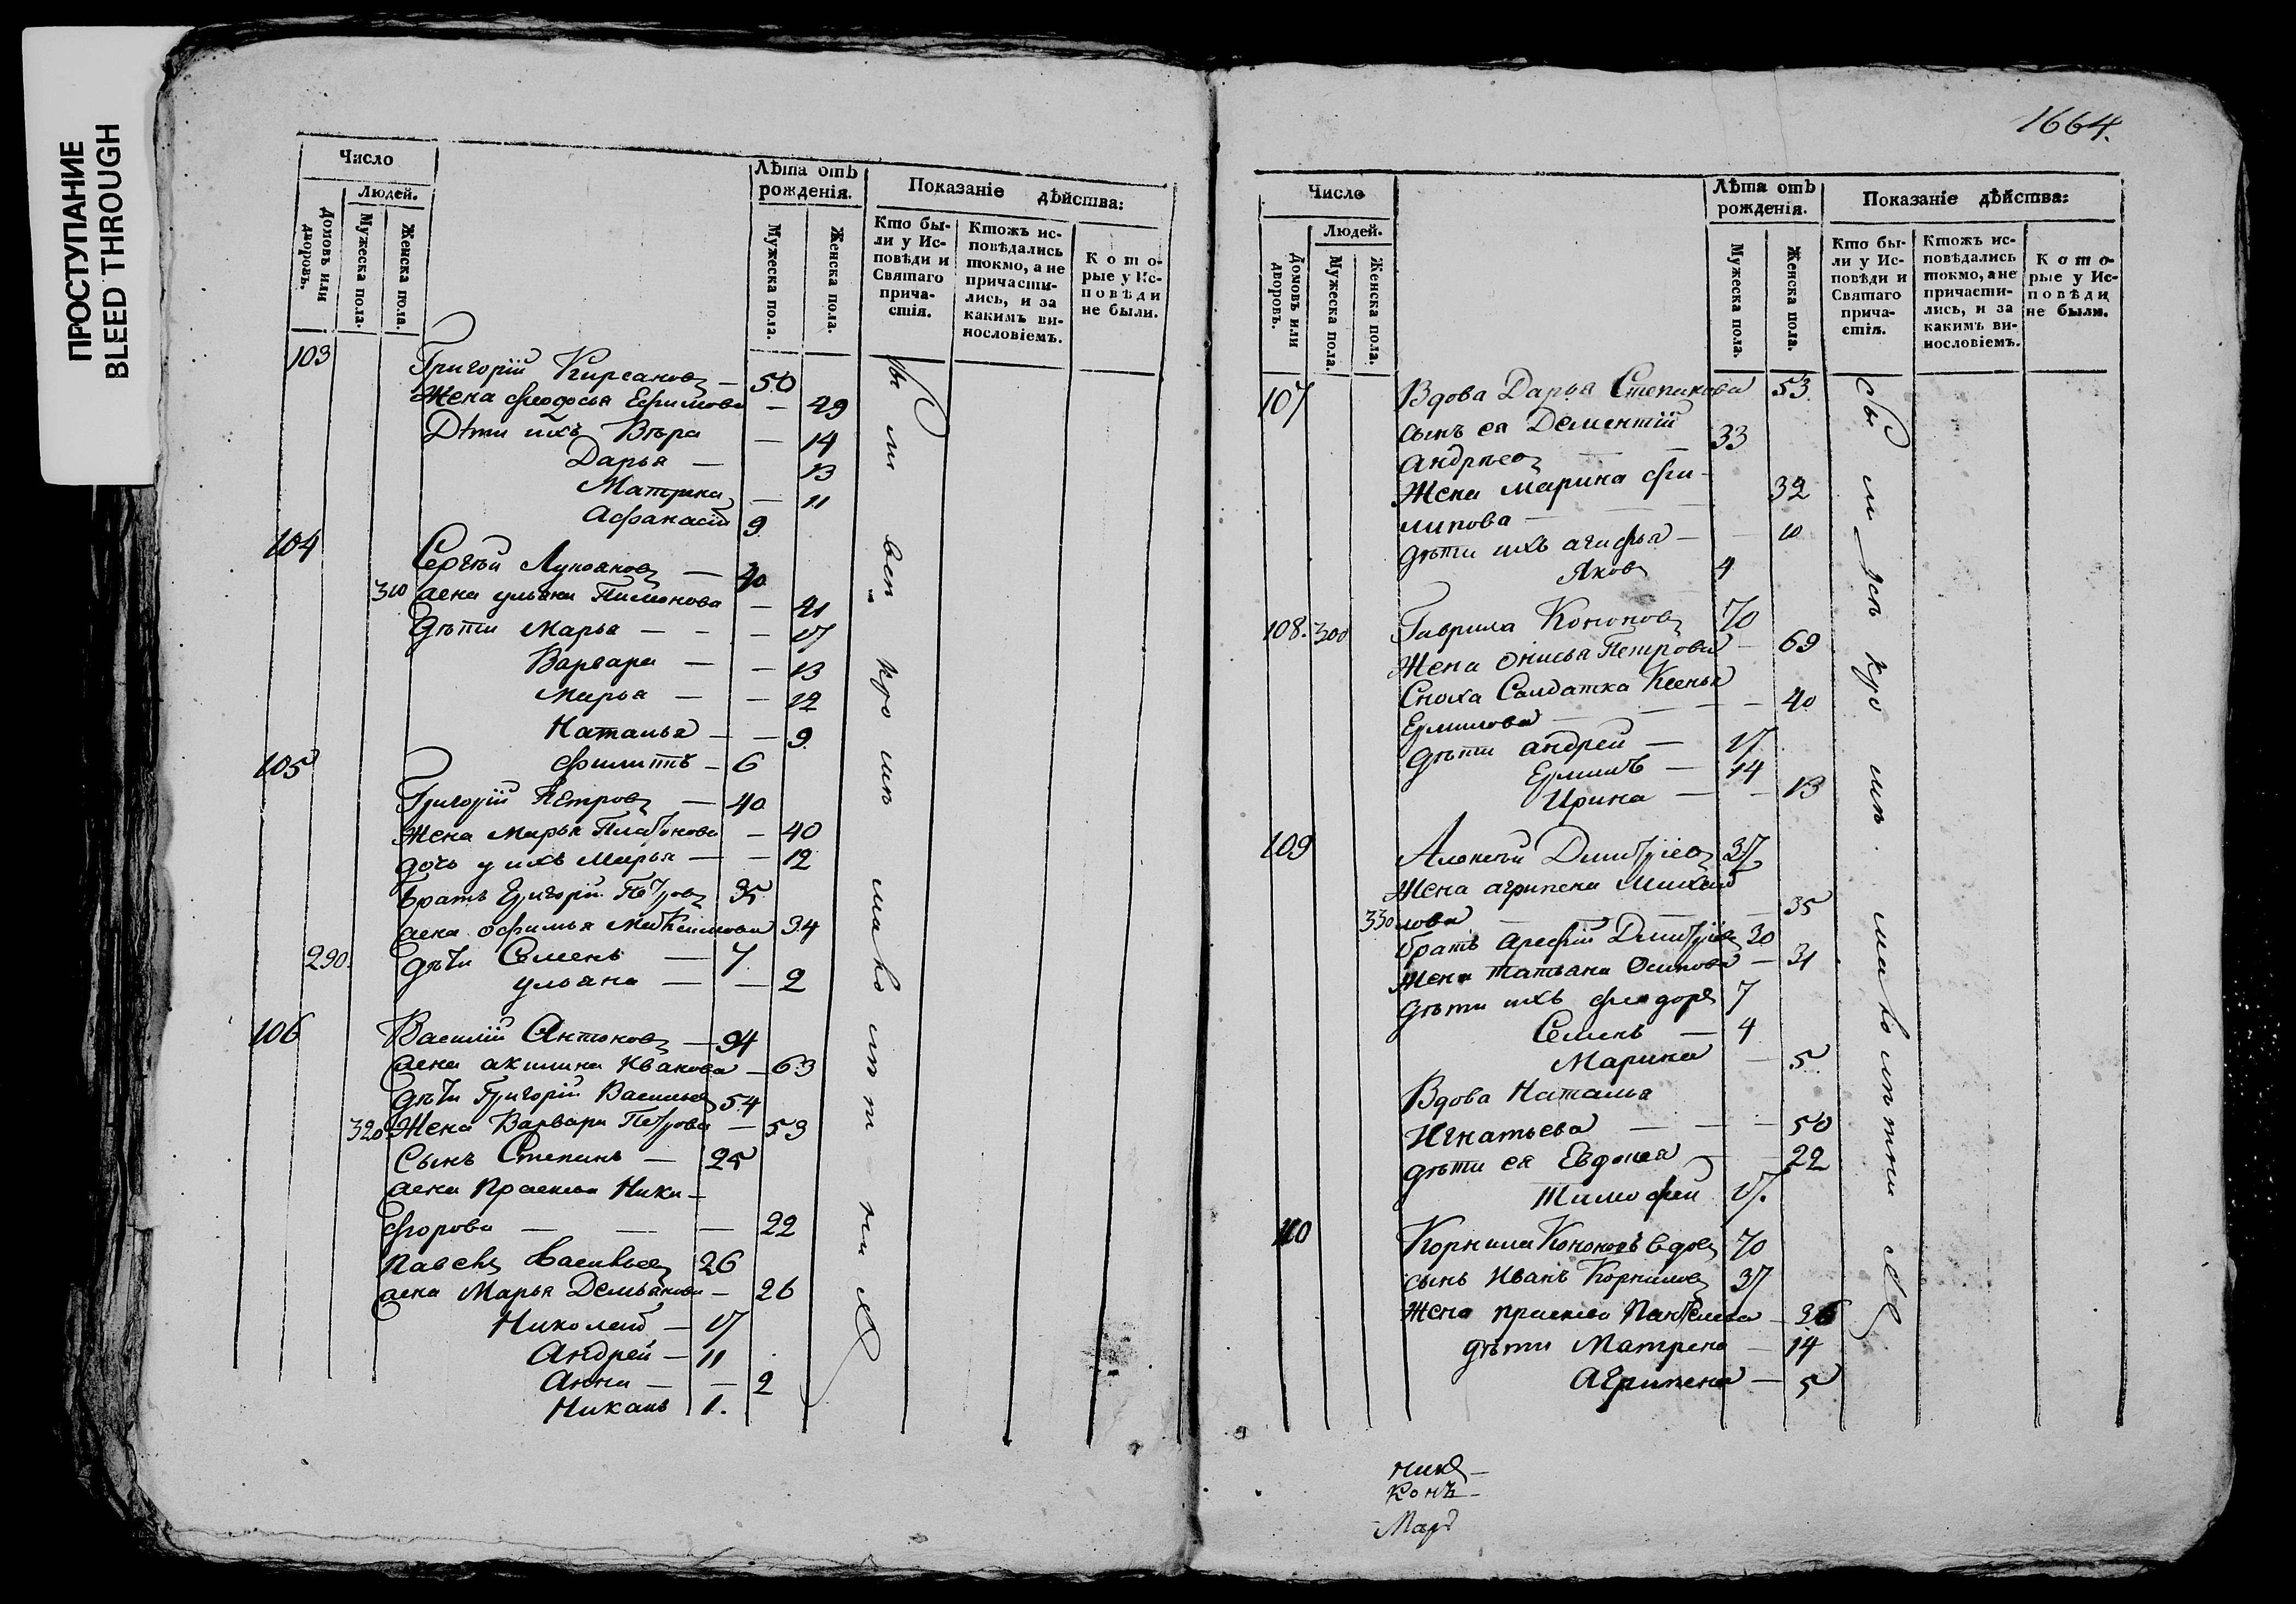 ПРОСТУПАНИЕ
BLEED THROUGH
Число
Людей.
Домовъ или дворовъ.
Мужеска пола.
Женска пола.
Лѣта отъ рожденія.
Мужеска пола.
Женска пола.
Показаніе дѣйства:
Кто были у Исповѣди и Святаго причастія.
Ктожъ исповѣдались токмо, а не причастились, и за какимъ винословіемъ.
Которые у Исповѣди не были.
103 Григорій Кирсановъ — 50
Жена Феодосья Ефимова — 49
Дѣти ихъ Вѣра — 14
Дарья — 13
Матрена — 11
Афанасій 9
104 Сергѣй Лукьяновъ — 40
310 жена ульяна Пимонова — 41
дѣти Марья — — — 17
Варвара — — 13
Марья — — 12
Наталья — — 9
Филиппъ — 6
105 Григорій Петровъ — 40
Жена Марья Платонова — 40
дочь у ихъ Марья — — 12
братъ Григорій Петровъ 35
жена Офимья Максимова 34
290. дѣти Семенъ — 7.
ульяна — — 2
106 Василій Антоновъ — 94
жена акилина Иванова — 63
дѣти Григорій Васильевъ 54
320 Жена Варвара Петрова — 53
Сынъ Степанъ — 25
жена Прасковья Ники-
форова — — — 22
Павелъ Васильевъ 26
жена Марья Демьянова — 26
Николай — 17
Андрей — 11
Анна — — 2
Никонъ 1.
1664.
Число
Людей.
Домовъ или дворовъ.
Мужеска пола.
Женска пола.
Лѣта отъ рожденія.
Мужеска пола.
Женска пола.
Показаніе дѣйства:
Кто были у Исповѣди и Святаго причастія.
Ктожъ исповѣдались токмо, а не причастились, и за какимъ винословіемъ.
Которые у Исповѣди не были.
107 Вдова Дарья Степанова 53
сынъ ея Дементій
андреевъ — — 33
Жена Марина Фи-
липова — — 32
дѣти ихъ агафья — — 10
Яковъ 4
108. 300 Гаврила Кононовъ 70
Жена Онисья Петрова — 69
Сноха Салдатка Ксенья
Ермилова — — — 40
дѣти андрей — 17
Ермилъ — 14
Ирина — — 13
109 Алексѣй Дмитріевъ 37
Жена агрипена Михай
330 лова — — — 35
братъ Арефій Дмитріевъ 30
Жена Татьяна Осипова — 31
дѣти ихъ Феодоръ 7
Семенъ — 4
Марина — 5
Вдова Наталья
Игнатьева — — — 50
дѣти ея Евдокея — 22
Тимофей 17.
110 Корнила Кононовъ вдовъ 70
сынъ Иванъ Корниловъ 37
Жена прасковья Пантелеева — 36
дѣти Матрена — 14
Агрипена — 5
Конъ —